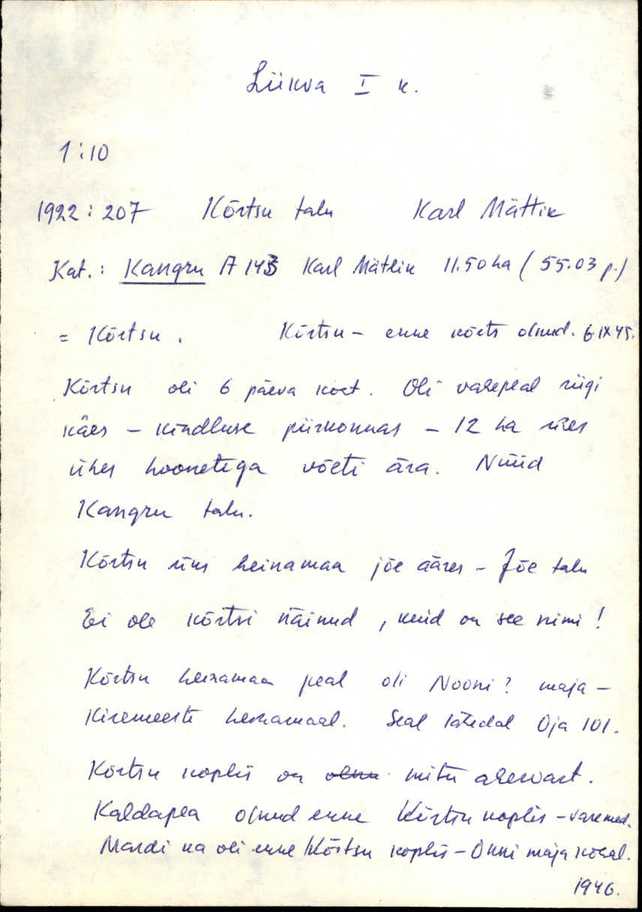 Liikva I k.
1:10
1922:207 Kõrtsu talu Karl Mättik
Kat.: Kangru A 143 Karl Mätlik 11.50 ha (55.03 p.)
= Kõrtsu. Kõrtsu – enne kõrts olnud. 6.IX45.
Kõrtsu oli 6 päeva koht. Oli vahepeal riigi
käes – kindluse piirkonnas – 12 ha
ühes hoonetega võeti ära. Nüüd
Kangru talu.
Kõrtsu heinamaa jõe ääres – Jõe talu
Ei ole kõrtsi näinud, kuid on see nimi!
Kõrtsu heinamaa peal oli Nooni? maja –
Kiremeeste heinamaal. Seal lähedal Oja 101.
Kõrtsu koplis on olnu mitu asewart.
Kaldapea olnud enne Kõrtsu koplis – varemed.
Mardi ka oli enne Kõrtsu koplis – Onni maja kohal.
1946.